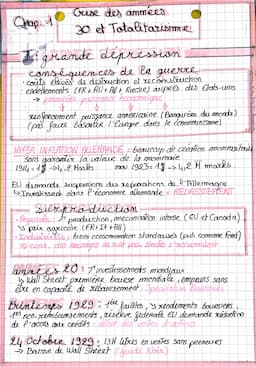 Chap. 1 Crise des années
30 et Totalitarisme
I: grande dépression
conséquences de la guerre
- coûts élevés de destruction et reconstruction
endettements (FR + RU + All + Russie) auprès des Etats-Unis
→ puissance économique
renforcement puissance américaine (Banquière du monde)
(pas faire basculer l'Europe dans le communisme)
HYPER INFLATION ALLEMANDE = beaucoup de création monétaire
sans garantir la valeur de la monnaie
1914: 1$ → 4,2 Marks nov 1923: 1$ → 4,2 M marks
EU demande suspension des réparations de l'Allemagne
→ Investissent dans l'économie allemande = REDRESSEMENT
surproduction
- Agricole: ↗ production, mécanisation intense (EU et Canada)
↘ prix agricole (FR + It + All)
- Industrielle: biens consommation standardisés (puis comme Ford)
→ stocks s'accumulent
années 20: ↗ investissements mondiaux
Wall Street première bourse mondiale, emprunts sans
être en capacité de remboursement
Printemps 1929: 1ères faillites, ↘ rendements boursiers,
1ers non-remboursements, réserve fédérale EU demande réduction
de l'accès aux crédits =
24 Octobre 1929: 13M titres en ventes sans preneurs
→ Bourse de Wall Street (jeudi Noir)